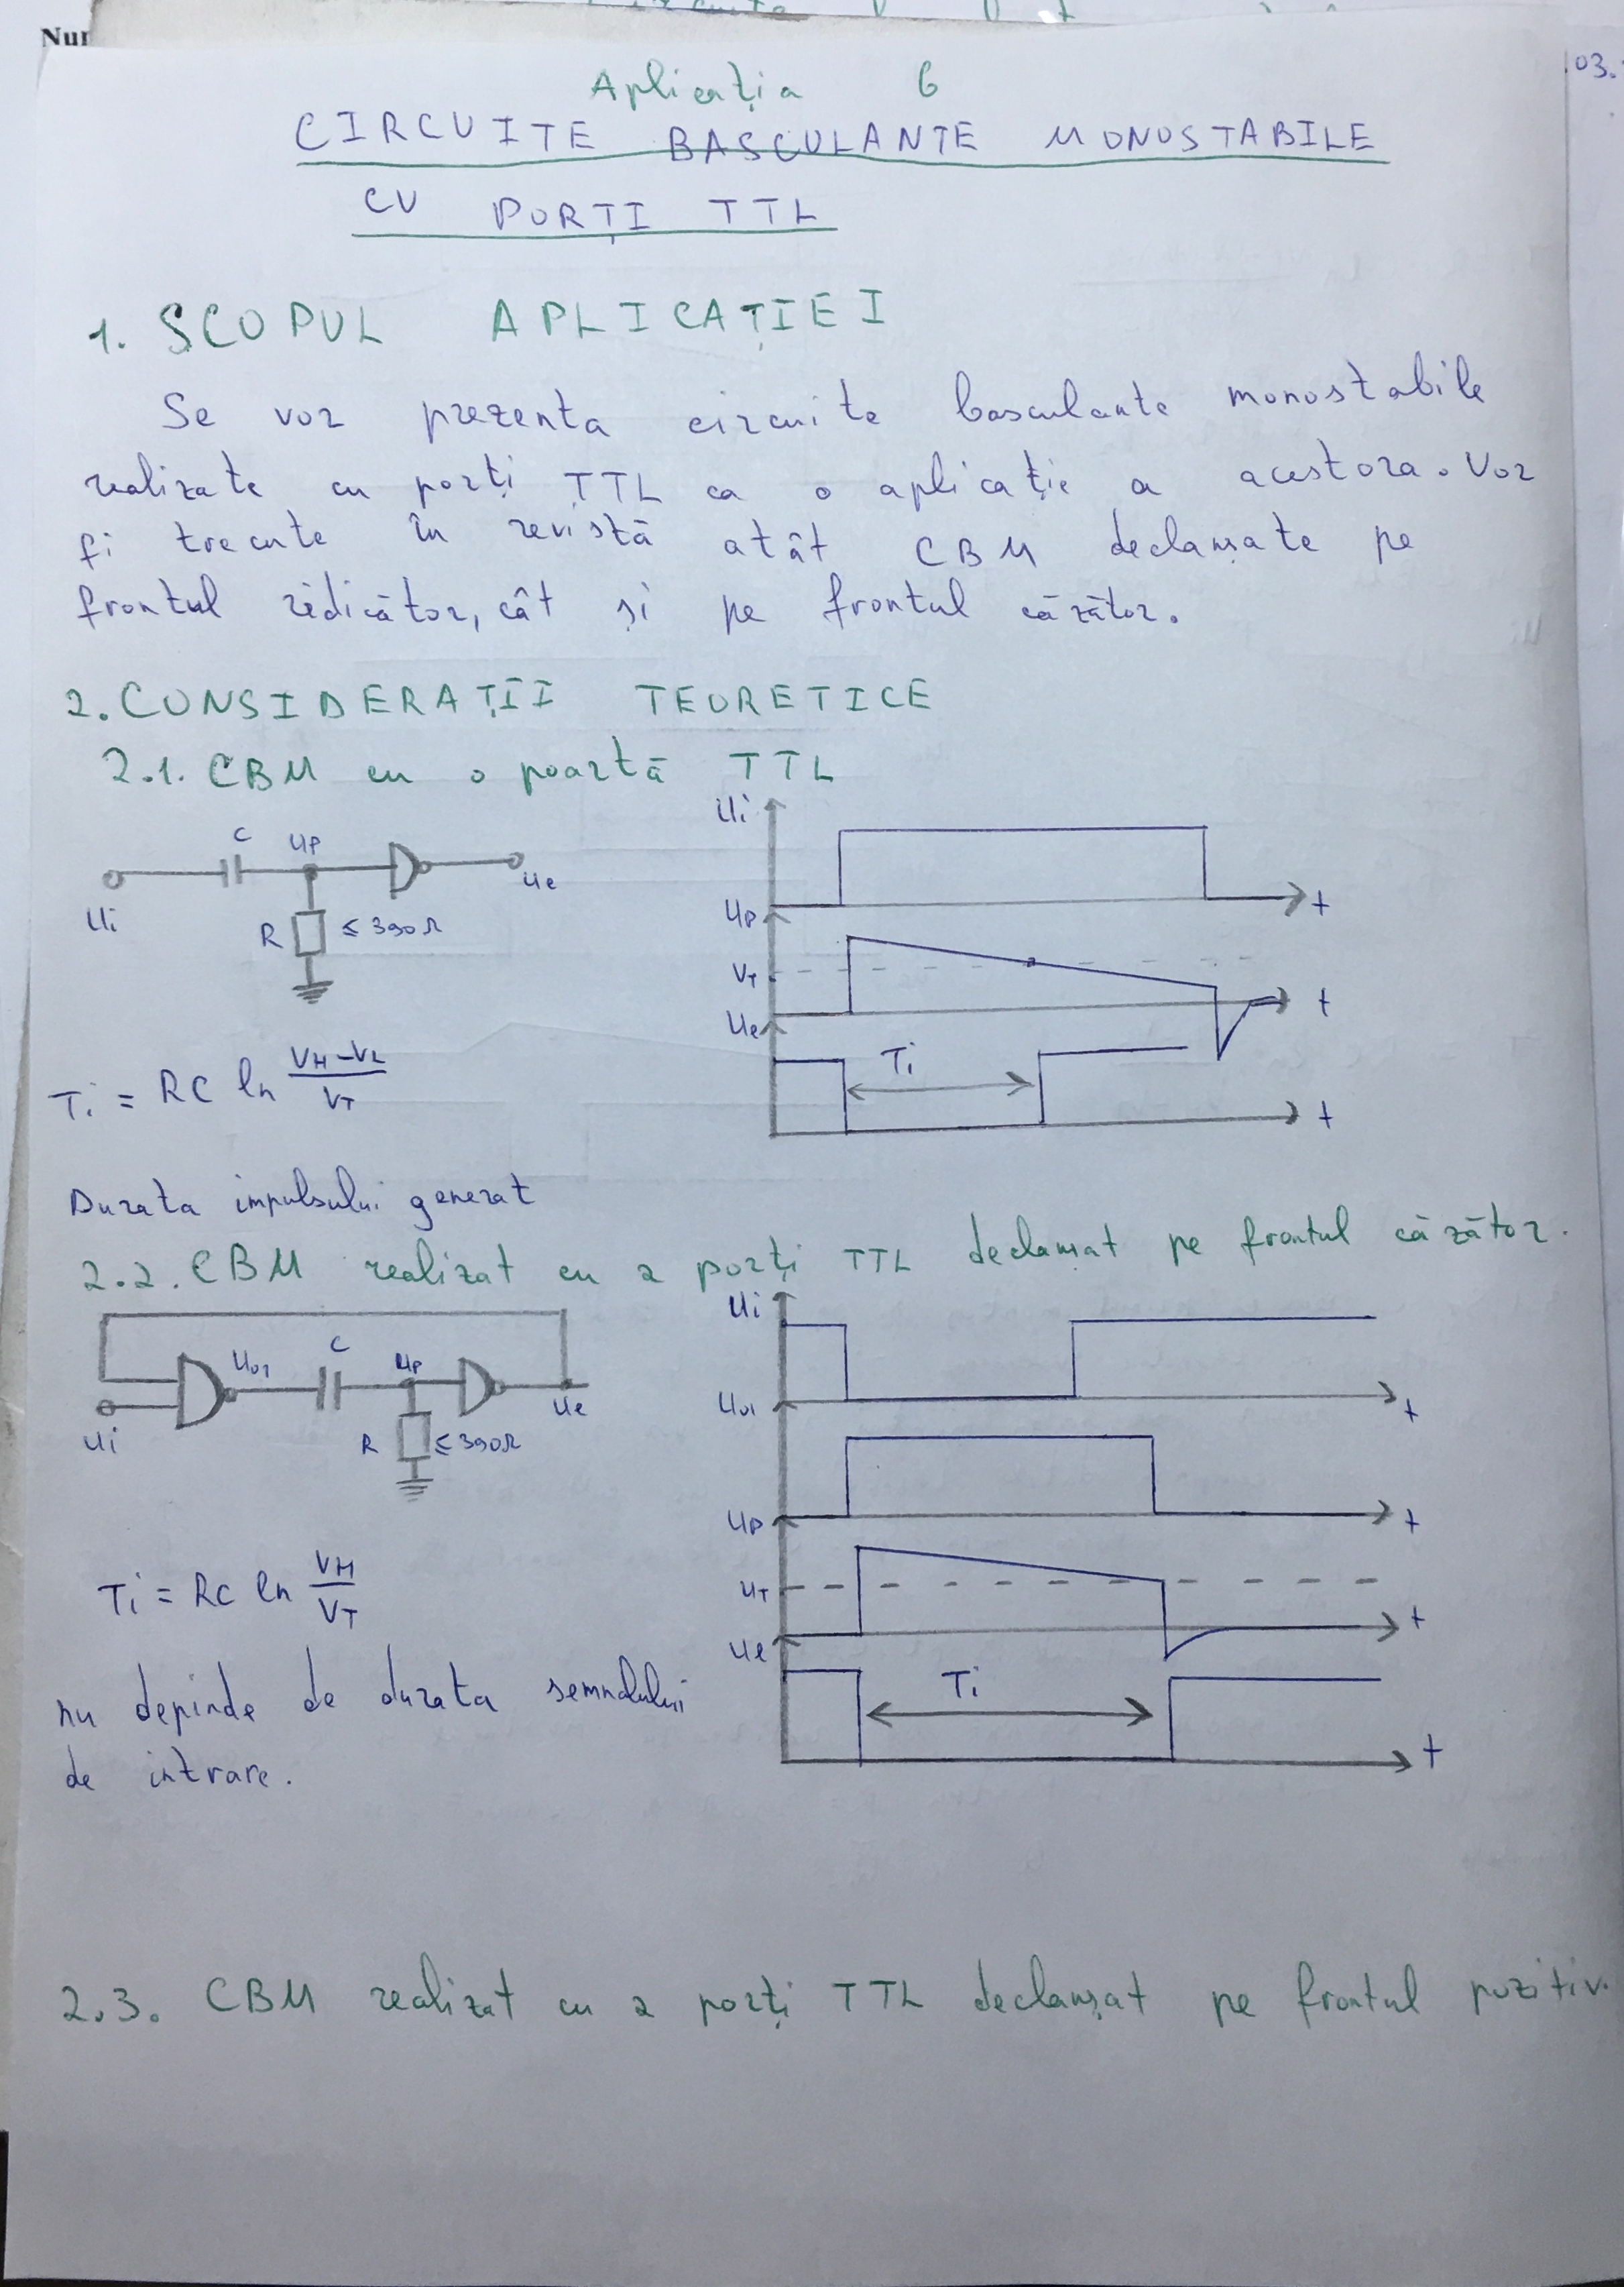 Nur
.03.
Aplicația 6
CIRCUITE BASCULANTE MONOSTABILE
CU PORȚI TTL
1. SCOPUL APLICAȚIEI
Se vor prezenta circuite basculante monostabile
realizate cu porți TTL ca o aplicație a acestora. Vor
fi trecute în revistă atât CBM declanșate pe
frontul rídicător, cât și pe frontul căzător.
2. CONSIDERAȚII TEORETICE
2.1. CBM cu o poartă TTL
Ui
C
UP
Ue
Ui
R
≤ 390Ω
UP
t
VT
t
Ue
Ti
t
Ti = RC ln (VH-VL)/VT
Durata impulsului generat
2.2. CBM realizat cu 2 porți TTL declanșat pe frontul căzător.
Ui
C
Uo1
UP
Ue
Ui
R
≤ 390Ω
Uo1
t
UP
t
Ti = RC ln VH/VT
UT
t
Ue
Ti
nu depinde de durata semnalului
de intrare.
t
2.3. CBM realizat cu 2 porți TTL declanșat pe frontul pozitiv.